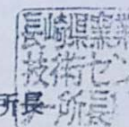 長崎県窯業
技術セン
ター所長
所長